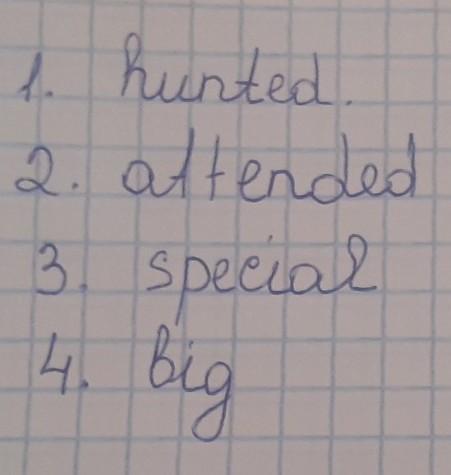 1. hunted.
2. attended
3. special
4. big